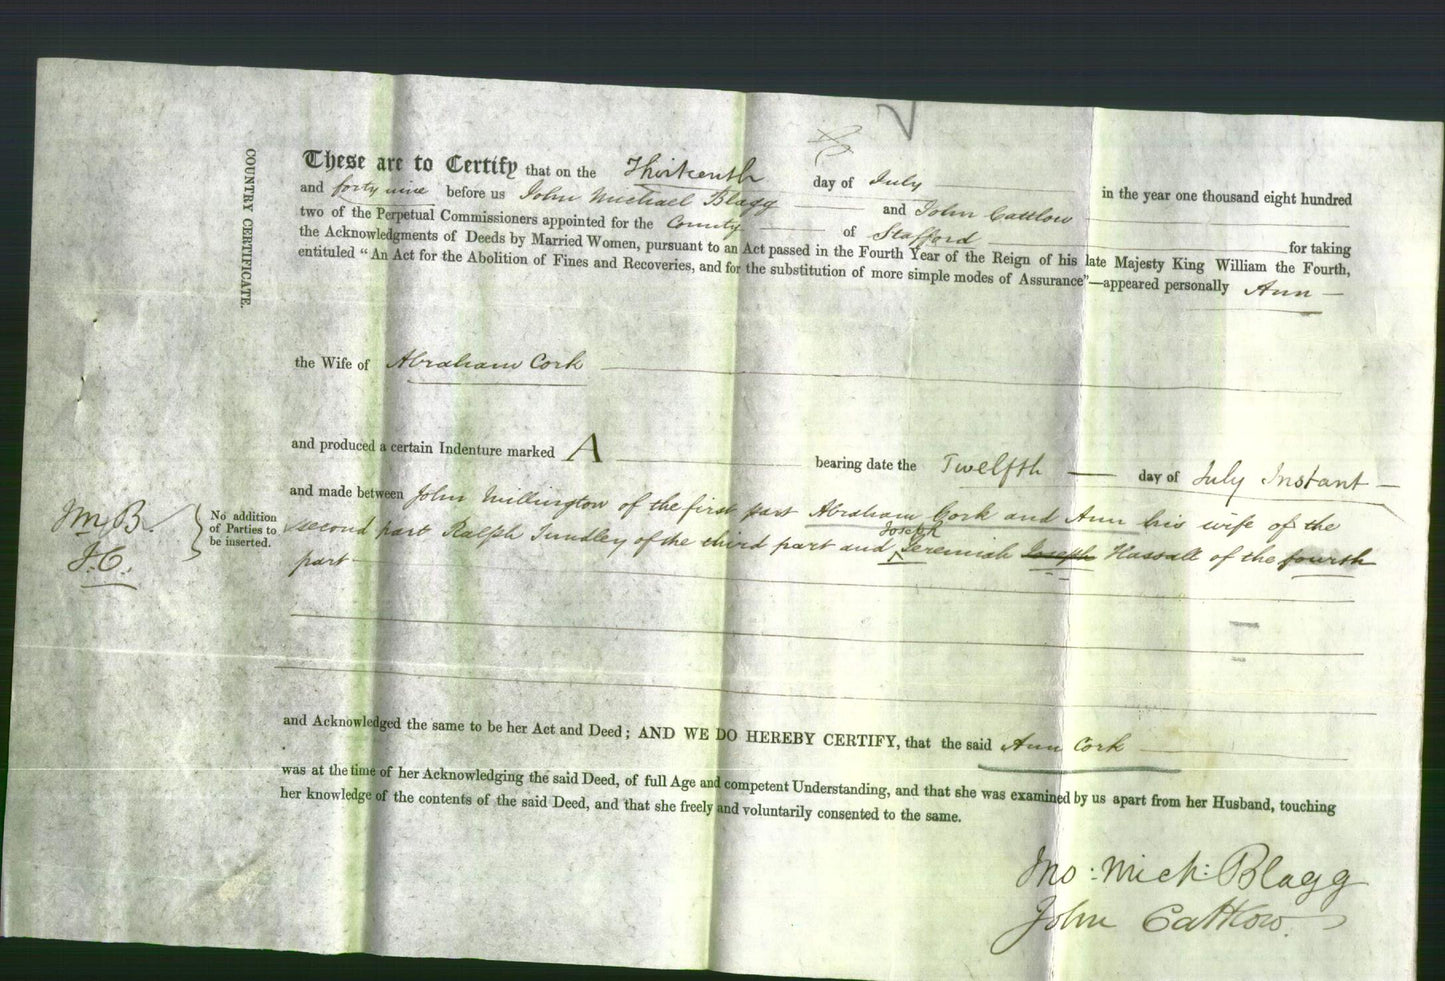 COUNTRY CERTIFICATE.
These are to Certify that on the Thirteenth day of July in the year one thousand eight hundred
and forty nine before us John Michael Blagg and John Cattlow
two of the Perpetual Commissioners appointed for the County of Stafford for taking
the Acknowledgments of Deeds by Married Women, pursuant to an Act passed in the Fourth Year of the Reign of his late Majesty King William the Fourth,
entituled “An Act for the Abolition of Fines and Recoveries, and for the substitution of more simple modes of Assurance”—appeared personally Ann
the Wife of Abraham Cork
and produced a certain Indenture marked A bearing date the Twelfth day of July Instant
and made between John Millington of the first part Abraham Cork and Ann his wife of the
second part Ralph Tundley of the third part and Joseph Jeremiah Joseph Hassall of the fourth
part
JMB
J.C.
No addition
of Parties to
be inserted.
and Acknowledged the same to be her Act and Deed; AND WE DO HEREBY CERTIFY, that the said Ann Cork
was at the time of her Acknowledging the said Deed, of full Age and competent Understanding, and that she was examined by us apart from her Husband, touching
her knowledge of the contents of the said Deed, and that she freely and voluntarily consented to the same.
Jno: Mich: Blagg
John Cattlow.